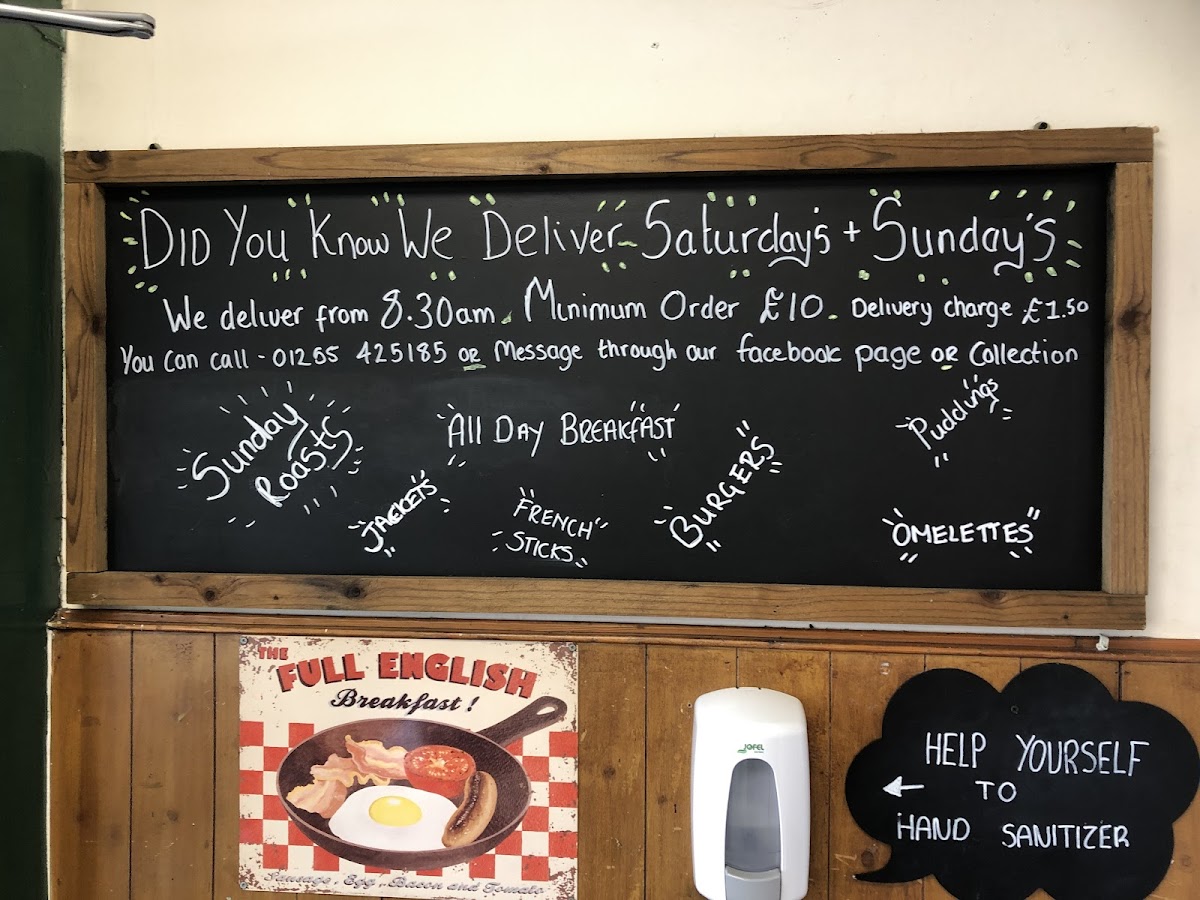 DID You Know We Deliver Saturday's + Sunday's
We deliver from 8.30am. Minimum Order £10. Delivery charge £1.50
You can call - 01265 425185 or Message through our facebook page or Collection
Sunday
Roasts
All Day BREAKFAST
Puddings
JACKETS
FRENCH
STICKS
BURGERS
OMELETTES
THE
FULL ENGLISH
Breakfast!
Sausage, Egg, Bacon and Tomato
JOFEL
HELP YOURSELF
← TO
HAND SANITIZER